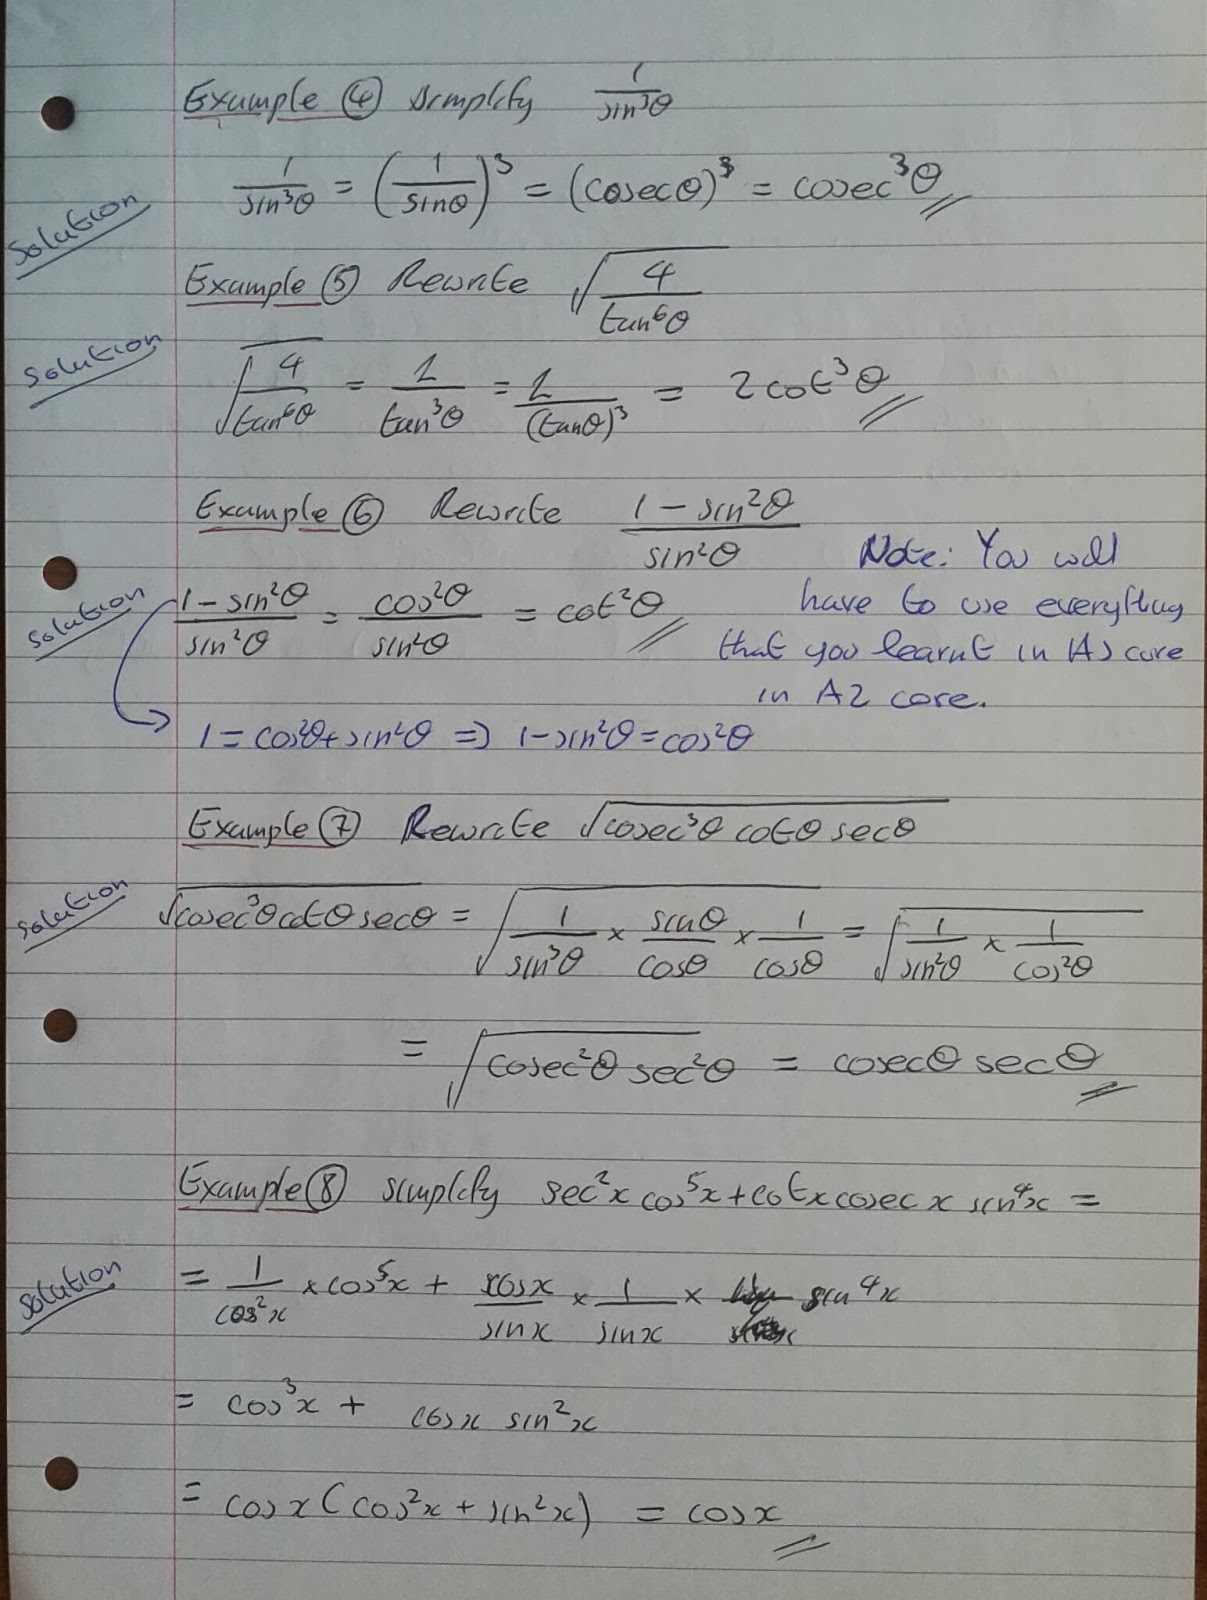 Example ④ Simplify 1/sin³θ
Solution
1/sin³θ = (1/sinθ)³ = (cosecθ)³ = cosec³θ
Example ⑤ Rewrite √(4/tan⁶θ)
Solution
√(4/tan⁶θ) = 2/tan³θ = 2/(tanθ)³ = 2cot³θ
Example ⑥ Rewrite (1 - sin²θ)/sin²θ
Solution
(1 - sin²θ)/sin²θ = cos²θ/sin²θ = cot²θ
Note: You will
have to use everything
that you learnt in AS core
in A2 core.
1 = cos²θ + sin²θ ⇒ 1 - sin²θ = cos²θ
Example ⑦ Rewrite √(cosec³θ cotθ secθ)
Solution
√(cosec³θ cotθ secθ) = √(1/sin³θ × sinθ/cosθ × 1/cosθ) = √(1/sin²θ × 1/cos²θ)
= √(cosec²θ sec²θ) = cosecθ secθ
Example ⑧ Simplify sec²x cos⁵x + cotx cosec x sin⁴x =
Solution
= 1/cos²x × cos⁵x + cosx/sinx × 1/sinx × sin⁴x
= cos³x + cosx sin²x
= cosx(cos²x + sin²x) = cosx